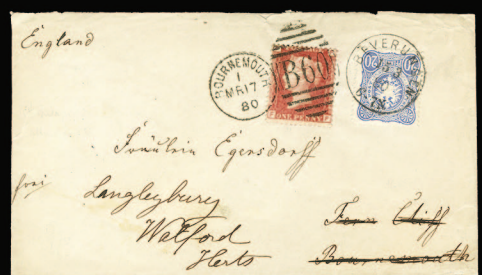 England
BOURNEMOUTH
1
MR 17
80
B60
ONE PENNY
BEVERUNGEN
20 20
Fräulein Egersdorff
frei
Langleybury
Watford
Herts
Fern Cliff
Bournemouth